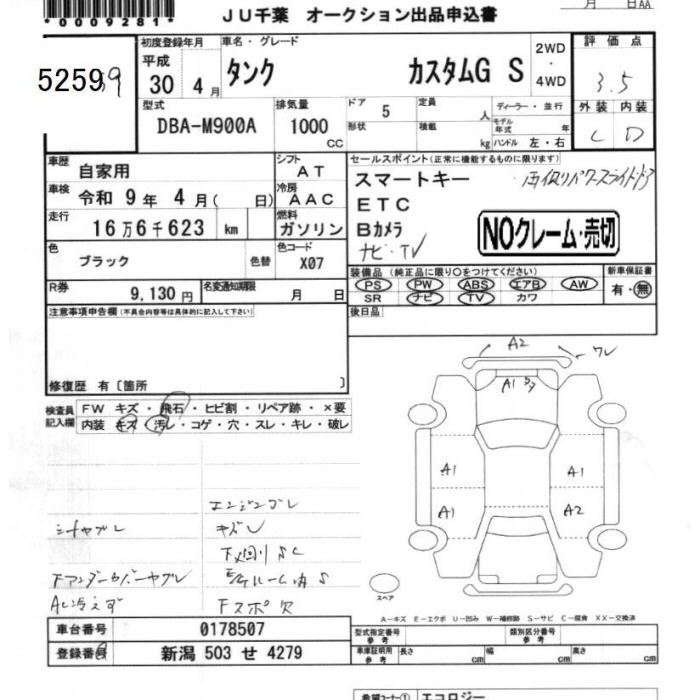 *0009281*
JU千葉 オークション出品申込書
月 日AA
52599
初度登録年月
車名・グレード
平成
30 4月
タンク カスタムG S
2WD
・
4WD
評価点
3.5
外装 内装
C D
型式
DBA-M900A
排気量
1000
CC
ドア 5
形状
定員 人
積載 kg
ディーラー・並行
モデル年式 年
ハンドル 左・右
車歴 自家用
シフト AT
車検 令和 9年 4月( 日)
冷房 AAC
走行 16万6千623 km
燃料 ガソリン
色 ブラック 色替
色コード X07
R券 9,130円
名変通知期限 月 日
セールスポイント(正常に機能するものに限ります)
スマートキー ・両側パワースライドドア
ETC
Bカメラ
ナビ・TV
NOクレーム・売切
装備品 (純正品に限り○をつけてください)
PS PW ABS エアB AW
SR ナビ TV カワ
新車保証書
有・無
後日品
注意事項申告欄(不具合内容等は具体的に記入して下さい)
修復歴 有〔箇所 〕
検査員
記入欄
FW キズ・飛石・ヒビ割・リペア跡・×要
内装 キズ・汚レ・コゲ・穴・スレ・キレ・破レ
エンジンブレ
シートヤブレ
キズレ
下廻りSC
Fアンダーカバーヤブレ
Eルーム内S
AC冷えず
Fスポ欠
A2
ワレ
A1
A1 A1
A1 A2
スペア
A-キズ E-エクボ U-凹み W-補修跡 S-サビ C-腐食 XX-交換済
車台番号 0178507
登録番号 新潟 503 せ 4279
型式指定番号
参考
類別区分番号
参考
車庫証明用
参考
長さ cm 幅 cm 高さ cm
希望コーナー① エコロジー